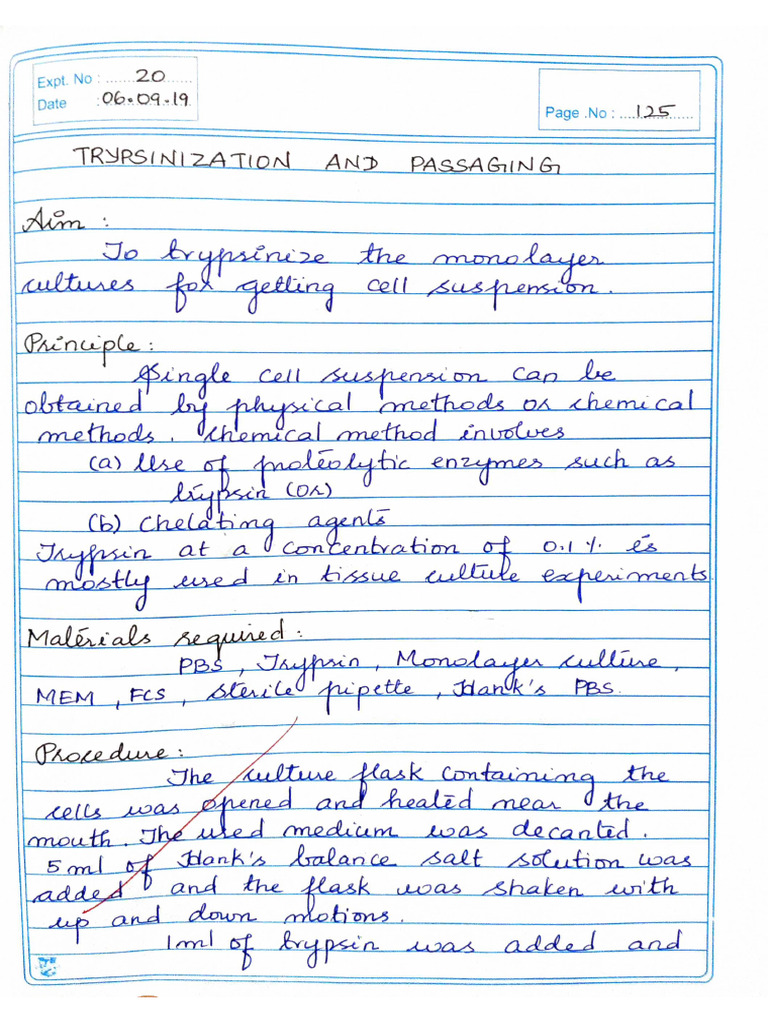 Expt. No : 20
Date : 06.09.19
Page .No : 125
TRYPSINIZATION AND PASSAGING
Aim :
To trypsinize the monolayer
cultures for getting cell suspension.
Principle :
Single cell suspension can be
obtained by physical methods or chemical
methods. Chemical method involves
(a) Use of proteolytic enzymes such as
trypsin (or)
(b) Chelating agents
Trypsin at a concentration of 0.1 % is
mostly used in tissue culture experiments
Materials required :
PBS, Trypsin, Monolayer culture,
MEM, FCS, Sterile pipette, Hank's PBS.
Procedure :
The culture flask containing the
cells was opened and heated near the
mouth. The used medium was decanted.
5 ml of Hank's balance salt solution was
added and the flask was shaken with
up and down motions.
1ml of trypsin was added and